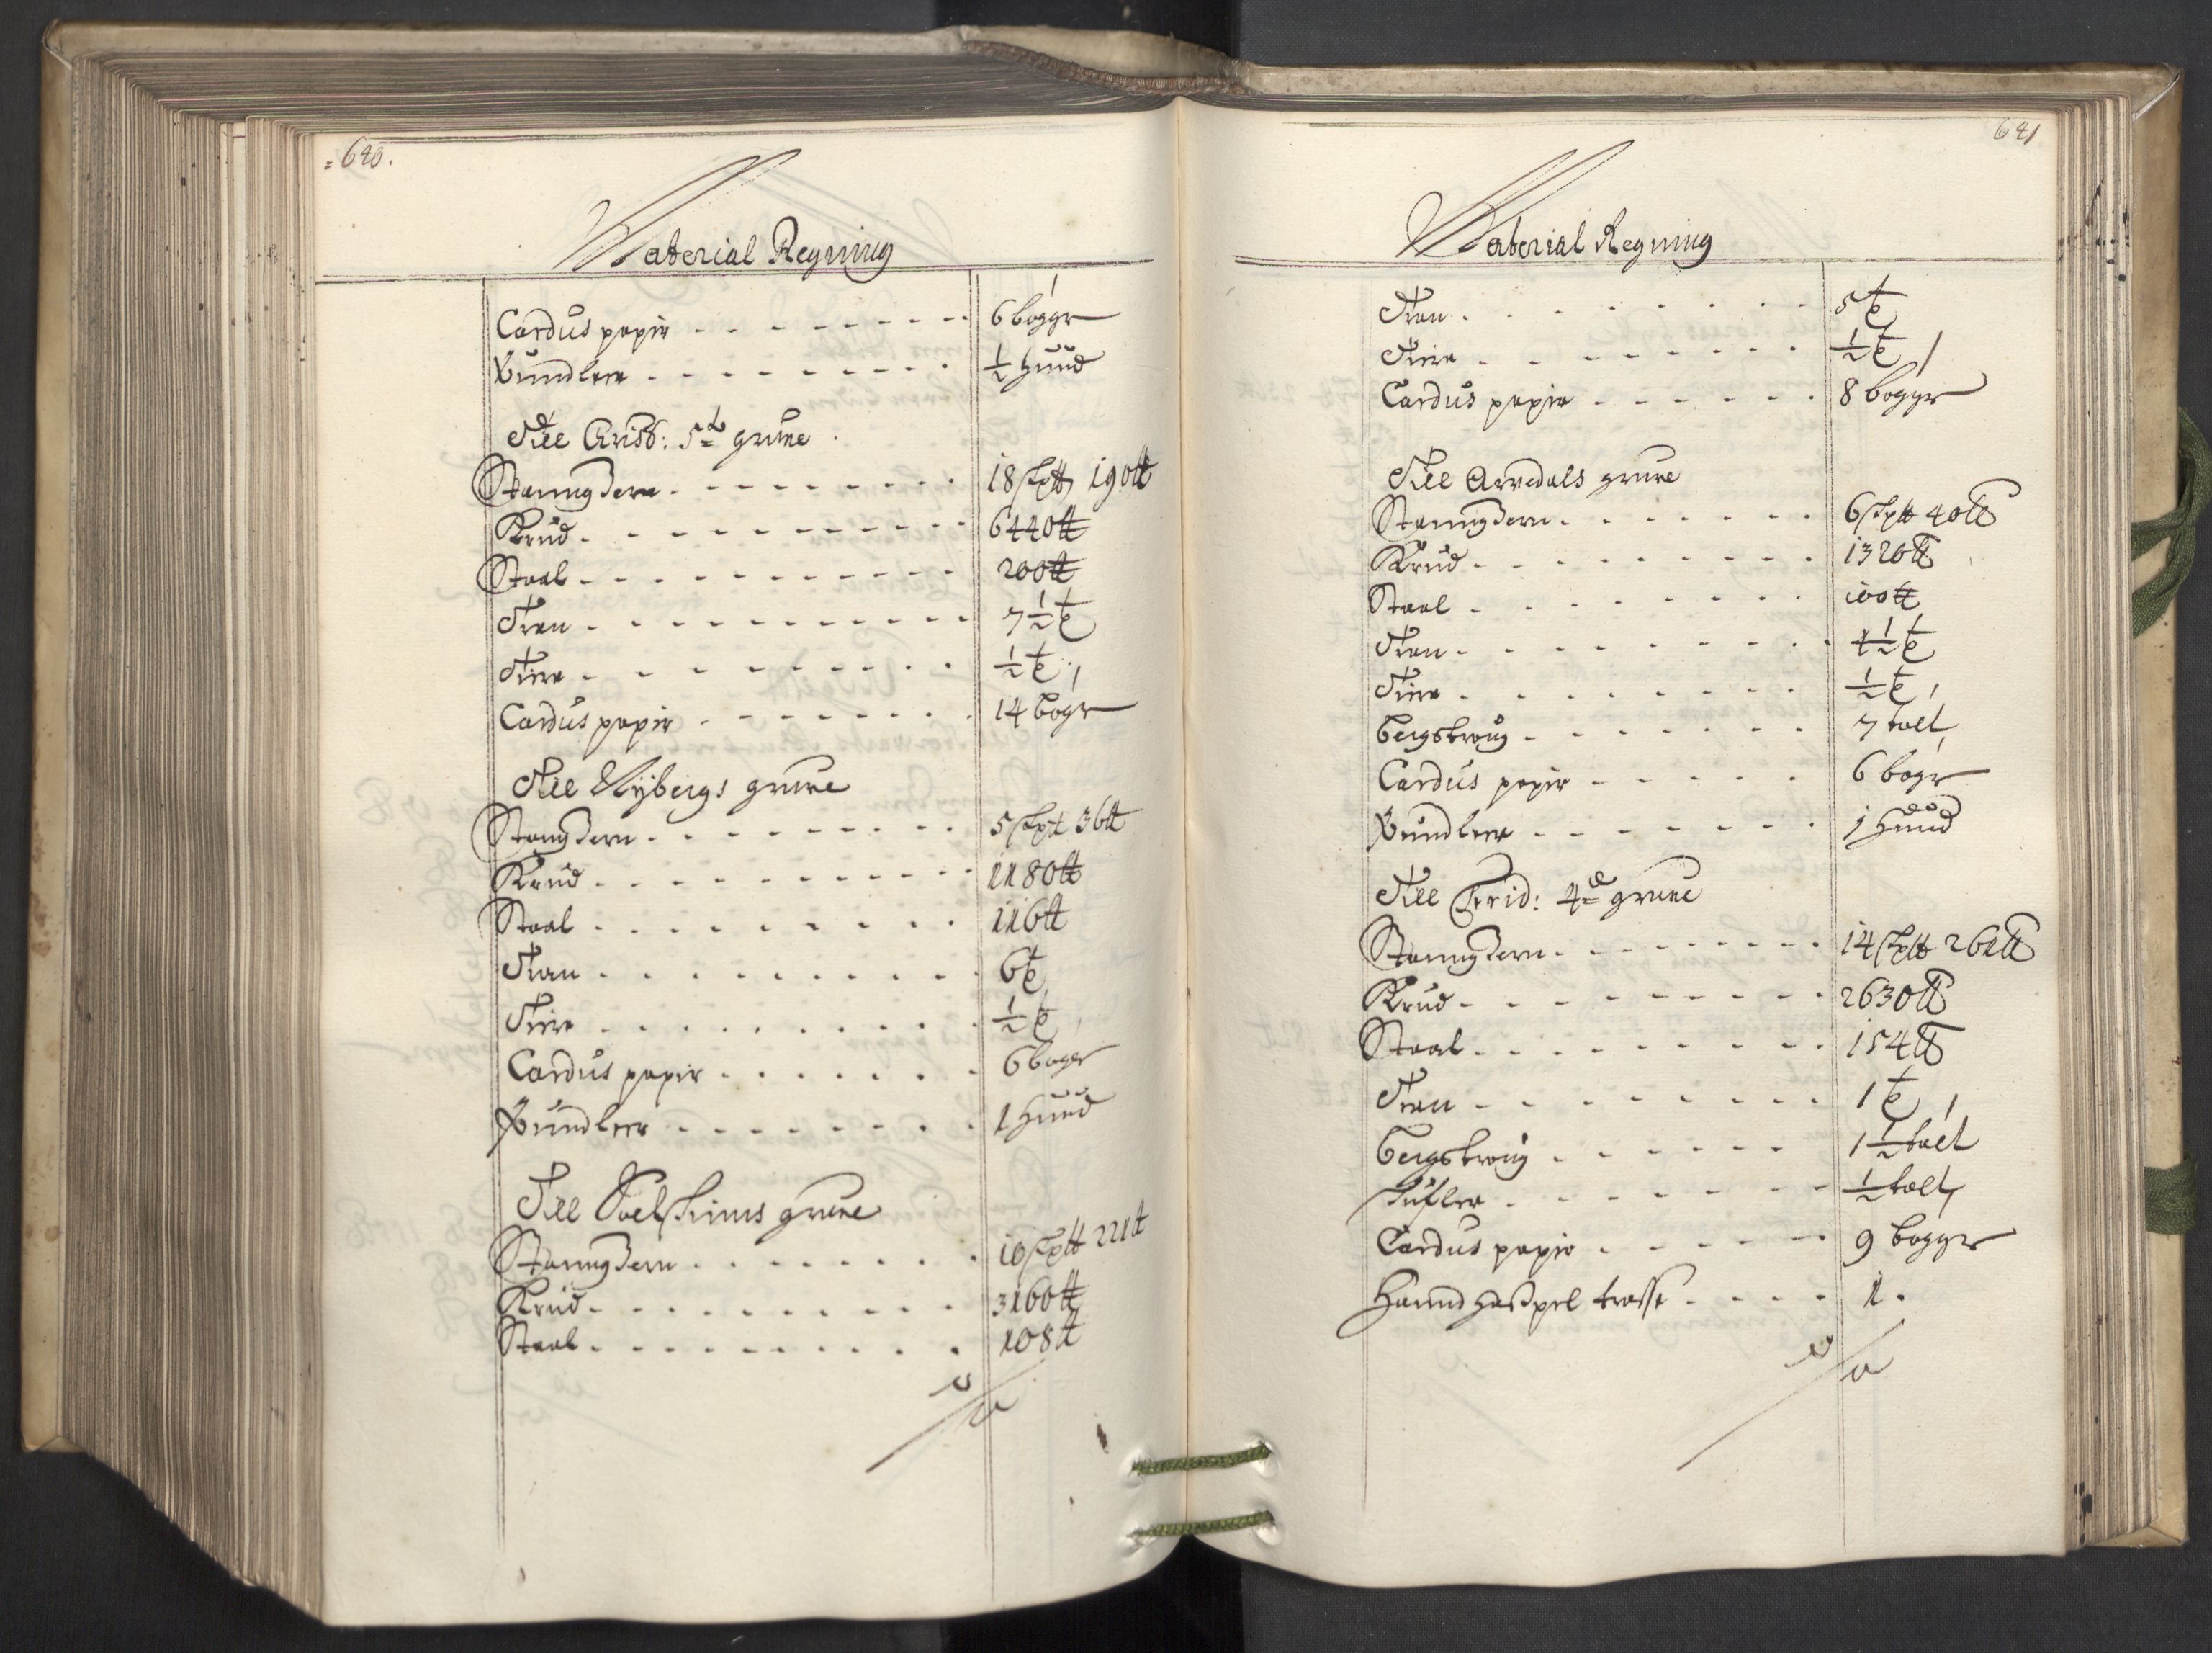 640.
Material Regning
Cardus papir - - - - - - - - 6 bøgger
Pundleer - - - - - - - - - ½ hund
Till Crist: 5te grube
Staangjern - - - - - - - - 18 skp℔ 190 ℔
Krud - - - - - - - - - 6440 ℔
Staal - - - - - - - - - - 200 ℔
Tran - - - - - - - - - - 7½ t
Tiere - - - - - - - - - ½ t
Cardus papir - - - - - - - 14 bøger
Till Nÿbergs grube
Stangjern - - - - - - - - 5 skp℔ 36 ℔
Krud - - - - - - - - - - 1180 ℔
Staal - - - - - - - - - 116 ℔
Tran - - - - - - - - - 6 t
Tiere - - - - - - - - - ½ t
Cardus papir - - - - - - 6 bøger
Pundleer - - - - - - - - 1 hund
Till grube
Staangjern - - - - - - - 10 skp℔ 221 ℔
Krud - - - - - - - - - 3160 ℔
Staal - - - - - - - - - 108 ℔
641
Material Regning
Tran - - - - - - - 5 t
Tiere - - - - - - - - ½ t
Cardus papir - - - - - - 8 bøgger
Till Arvedals grube
Staangjern - - - - - - - 6 skp℔ 40 ℔
Krud - - - - - - - - - 1320 ℔
Staal - - - - - - - - 100 ℔
Tran - - - - - - - - 1½ t
Tiere - - - - - - - - ½ t
Bergstroug - - - - - - - 7 tolt
Cardus papir - - - - - 6 bøger
Pundleer - - - - - - - 1 hund
Till Frid: 4de grube
Staangjern - - - - - - - - 14 skp℔ 261 ℔
Krud - - - - - - - - - 2630 ℔
Staal - - - - - - - - - 154 ℔
Tran - - - - - - - - - 1 t
Bergstroug - - - - - - 1½ tolt
Skufler - - - - - - - ½ tolt
Cardus papir - - - - - 9 bøgger
Haandhaspel trosse - - - - 1.